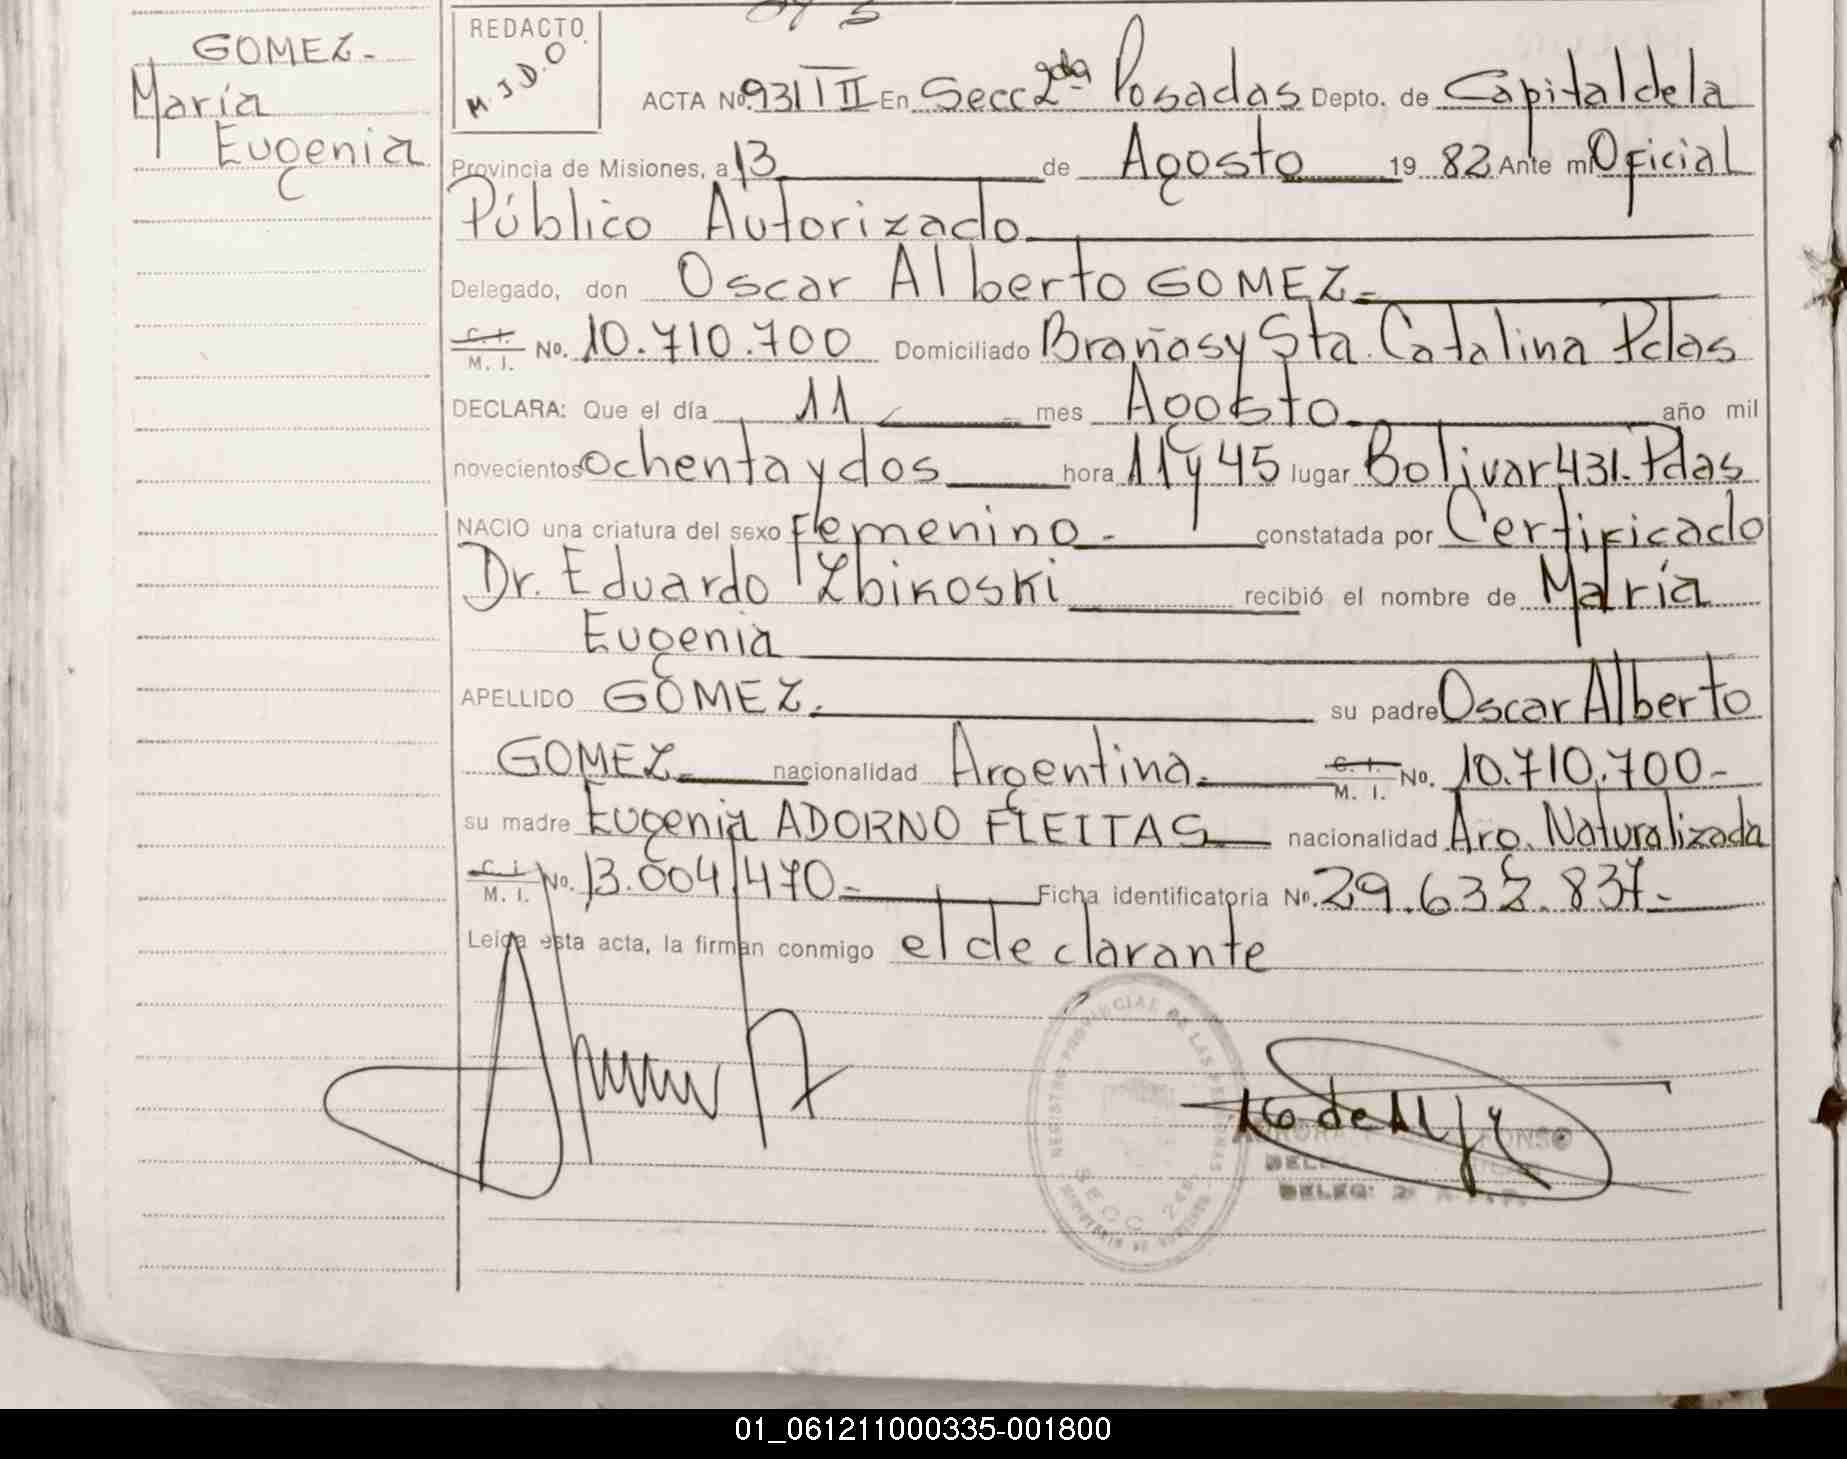 GOMEZ-
María
Eugenia
REDACTO.
M.J.D.O
ACTA No. 931 T II En Secc 2da Posadas Depto. de Capital de la
Provincia de Misiones, a 13 de Agosto 19 82 Ante mi Oficial
Público Autorizado
Delegado, don Oscar Alberto GOMEZ-
C. I.
M. I. No. 10.710.700 Domiciliado Brañas y Sta. Catalina Pdas
DECLARA: Que el día 11 mes Agosto año mil
novecientos ochenta y dos hora 11 y 45 lugar Bolivar 431. Pdas
NACIO una criatura del sexo Femenino- constatada por Certificado
Dr. Eduardo Zbikoski recibió el nombre de María
Eugenia
APELLIDO GOMEZ. su padre Oscar Alberto
GOMEZ- nacionalidad Argentina. C. I.
M. I. No. 10.710.700-
su madre Eugenia ADORNO FLEITAS nacionalidad Arg. Naturalizada
C. I.
M. I. No. 13.004.470- Ficha identificatoria No. 29.632.837-
Leída esta acta, la firman conmigo el declarante
REGISTRO PROVINCIAL DE LAS PERSONAS
SECC. 2da
01_061211000335-001800